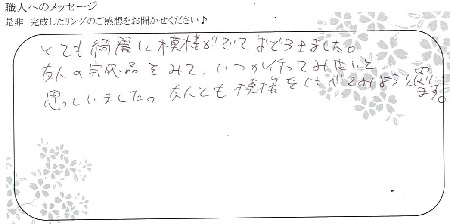 職人へのメッセージ
是非 完成したリングのご感想をお聞かせください♪
とても綺麗に模様がでておどろきました。
友人の完成品をみて、いつか作ってみたいと
思っていました。友人とも模様をくらべてみようと思い
ます。